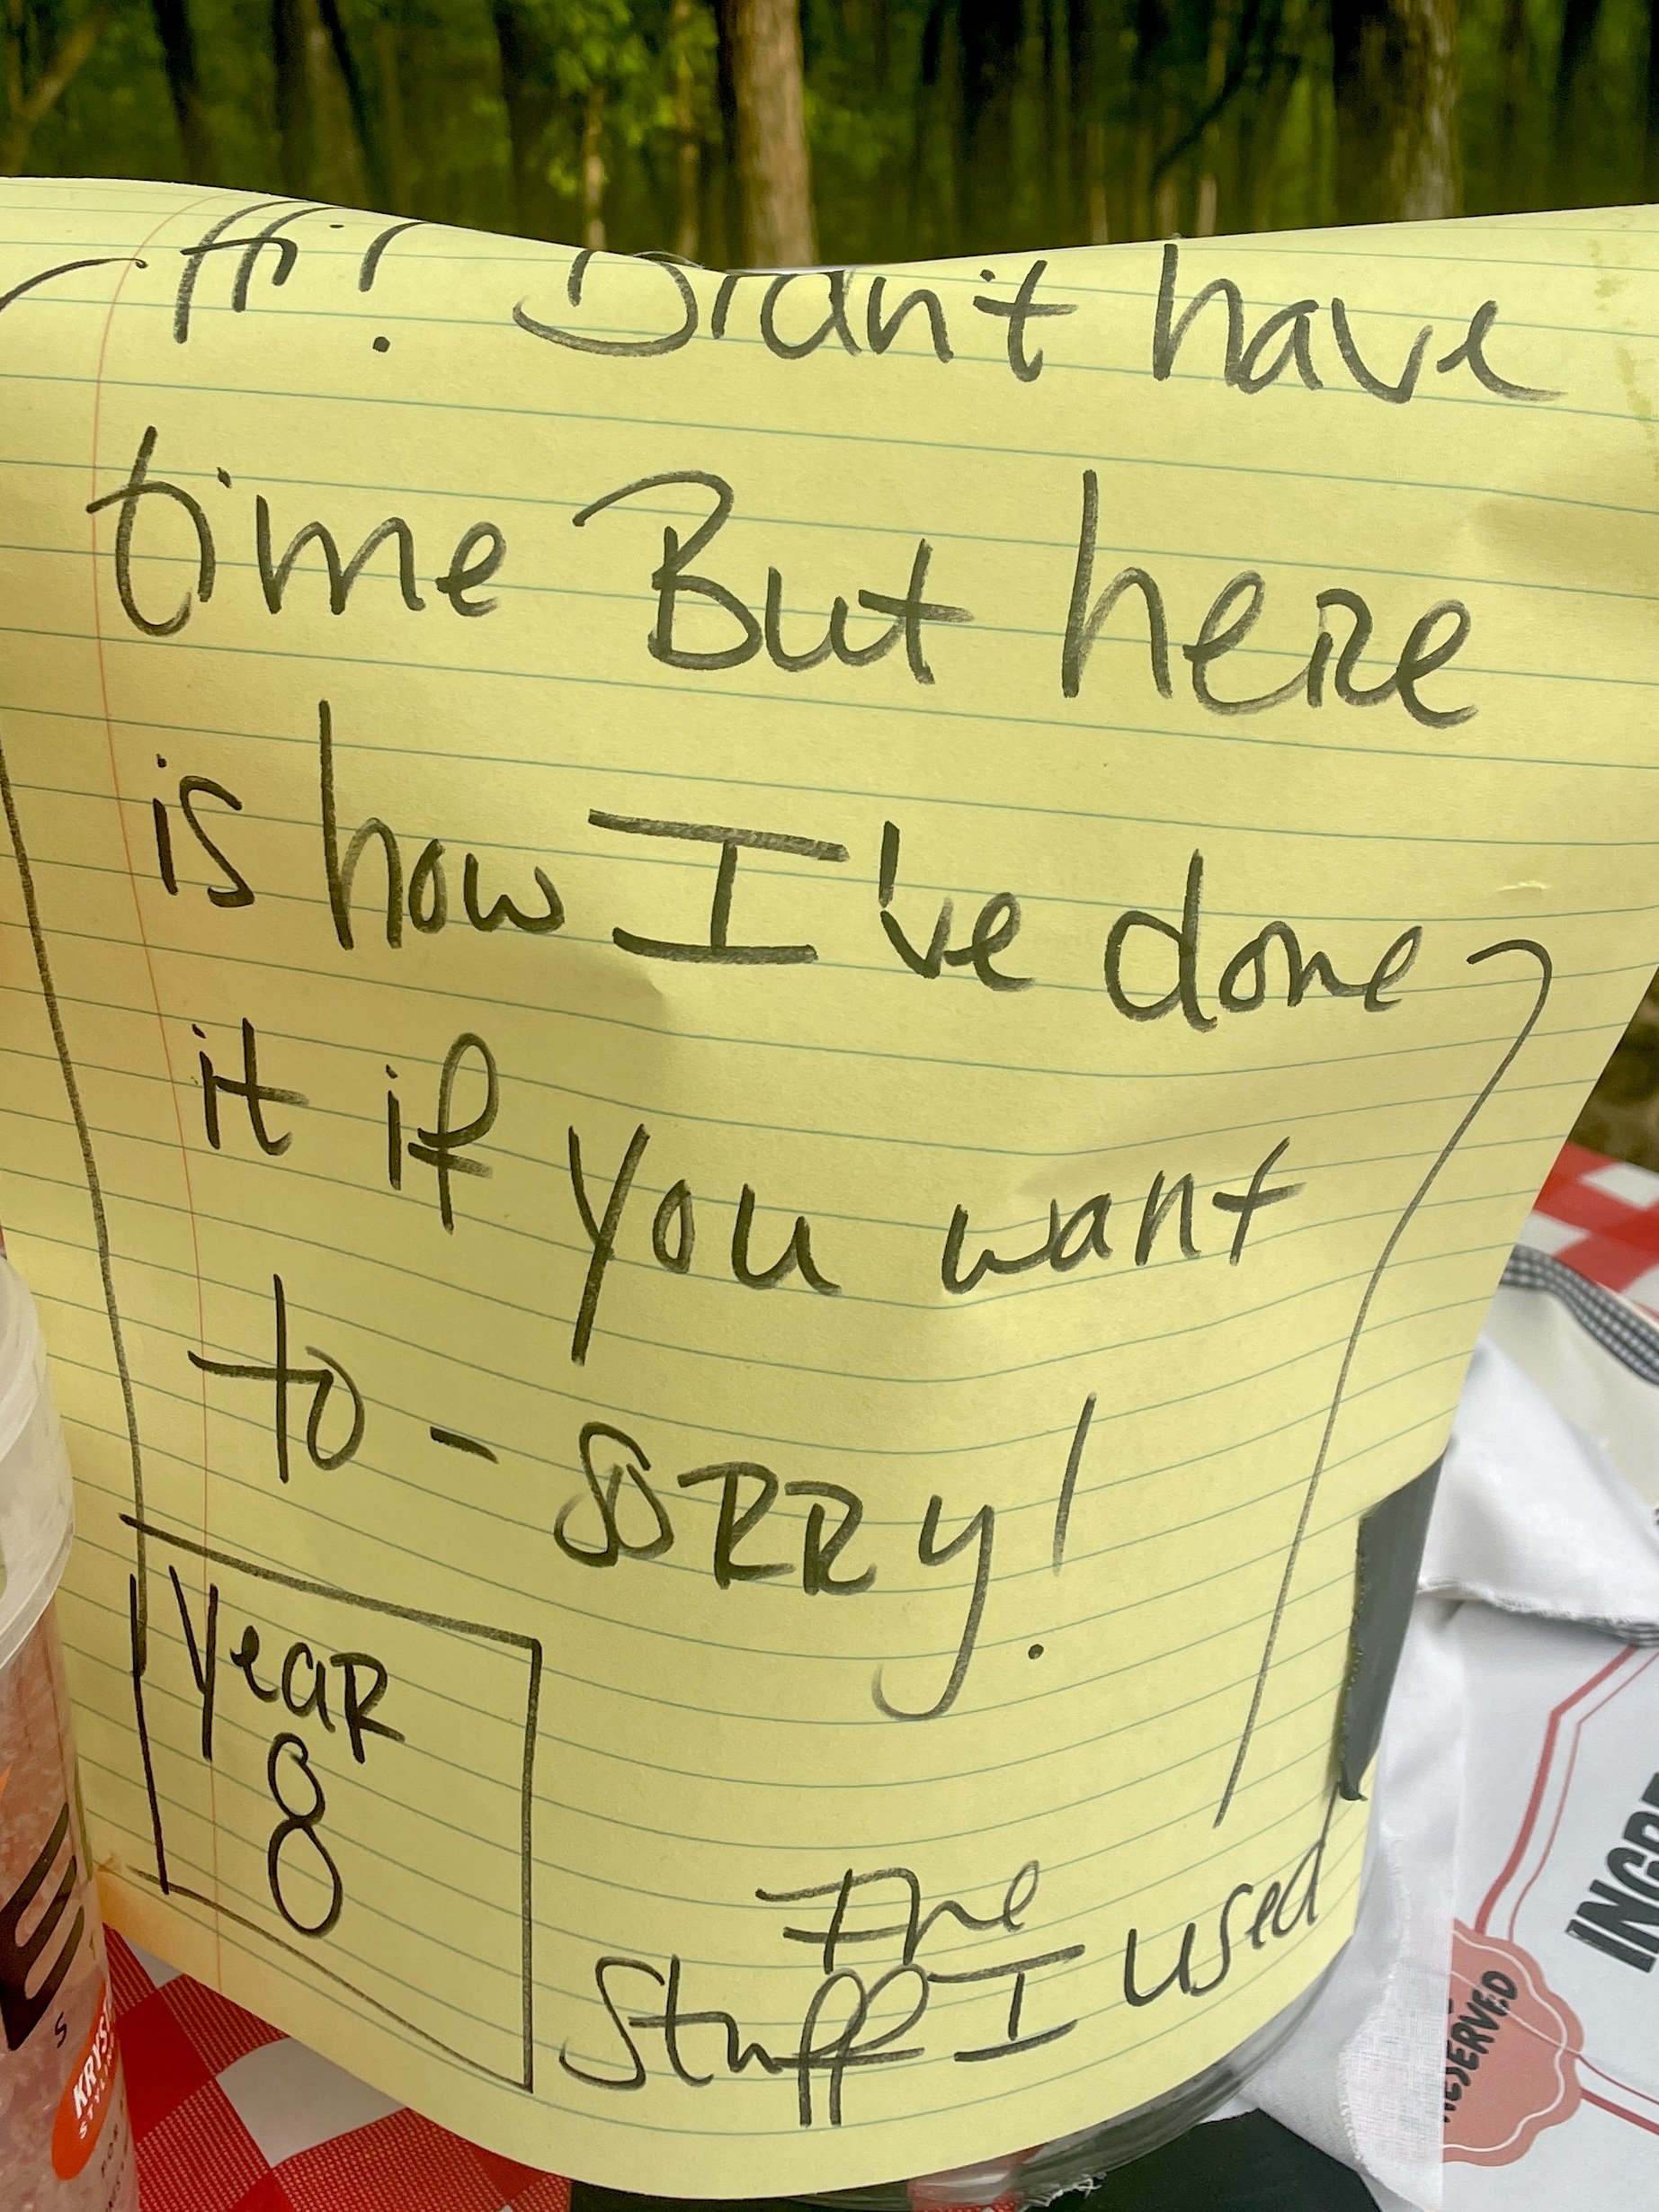 Hi! Didn't have
time But here
is how I've done
it if you want
to - SORRY!
Year
8
The
Stuff I used
KRYS
INGRE
RESERVED